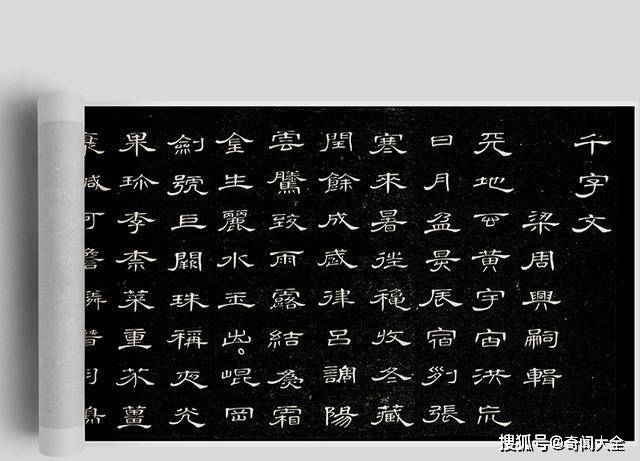 千字文
梁周興嗣輯
天地玄黃宇宙洪荒
日月盈昃辰宿列張
寒來暑往穐收冬藏
閏餘成歲律呂調陽
雲騰致雨露結為霜
金生麗水玉出崐岡
劍號巨闕珠稱夜光
果珍李柰菜重芥薑
搜狐号@奇闻大全